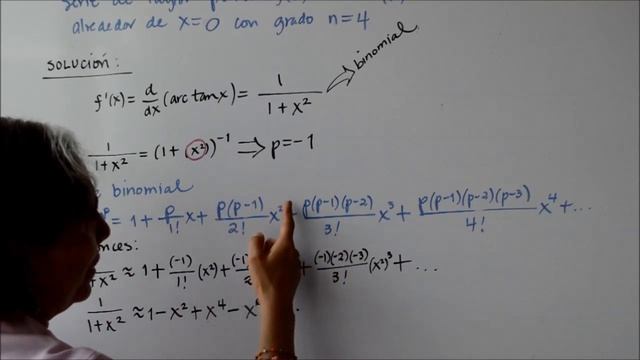 serie de
alrededor de x=0 con grado n=4
SOLUCIÓN:
f'(x) = d/dx (arc tan x) = 1/(1+x²) binomial
1/(1+x²) = (1+(x²))⁻¹ ⇒ p=-1
binomial
p = 1 + p/1! x + p(p-1)/2! x² + p(p-1)(p-2)/3! x³ + p(p-1)(p-2)(p-3)/4! x⁴ + ...
nces:
+x² ≈ 1 + (-1)/1! (x²) + (-1) + (-1)(-2)(-3)/3! (x²)³ + ...
1/(1+x²) ≈ 1 - x² + x⁴ - x